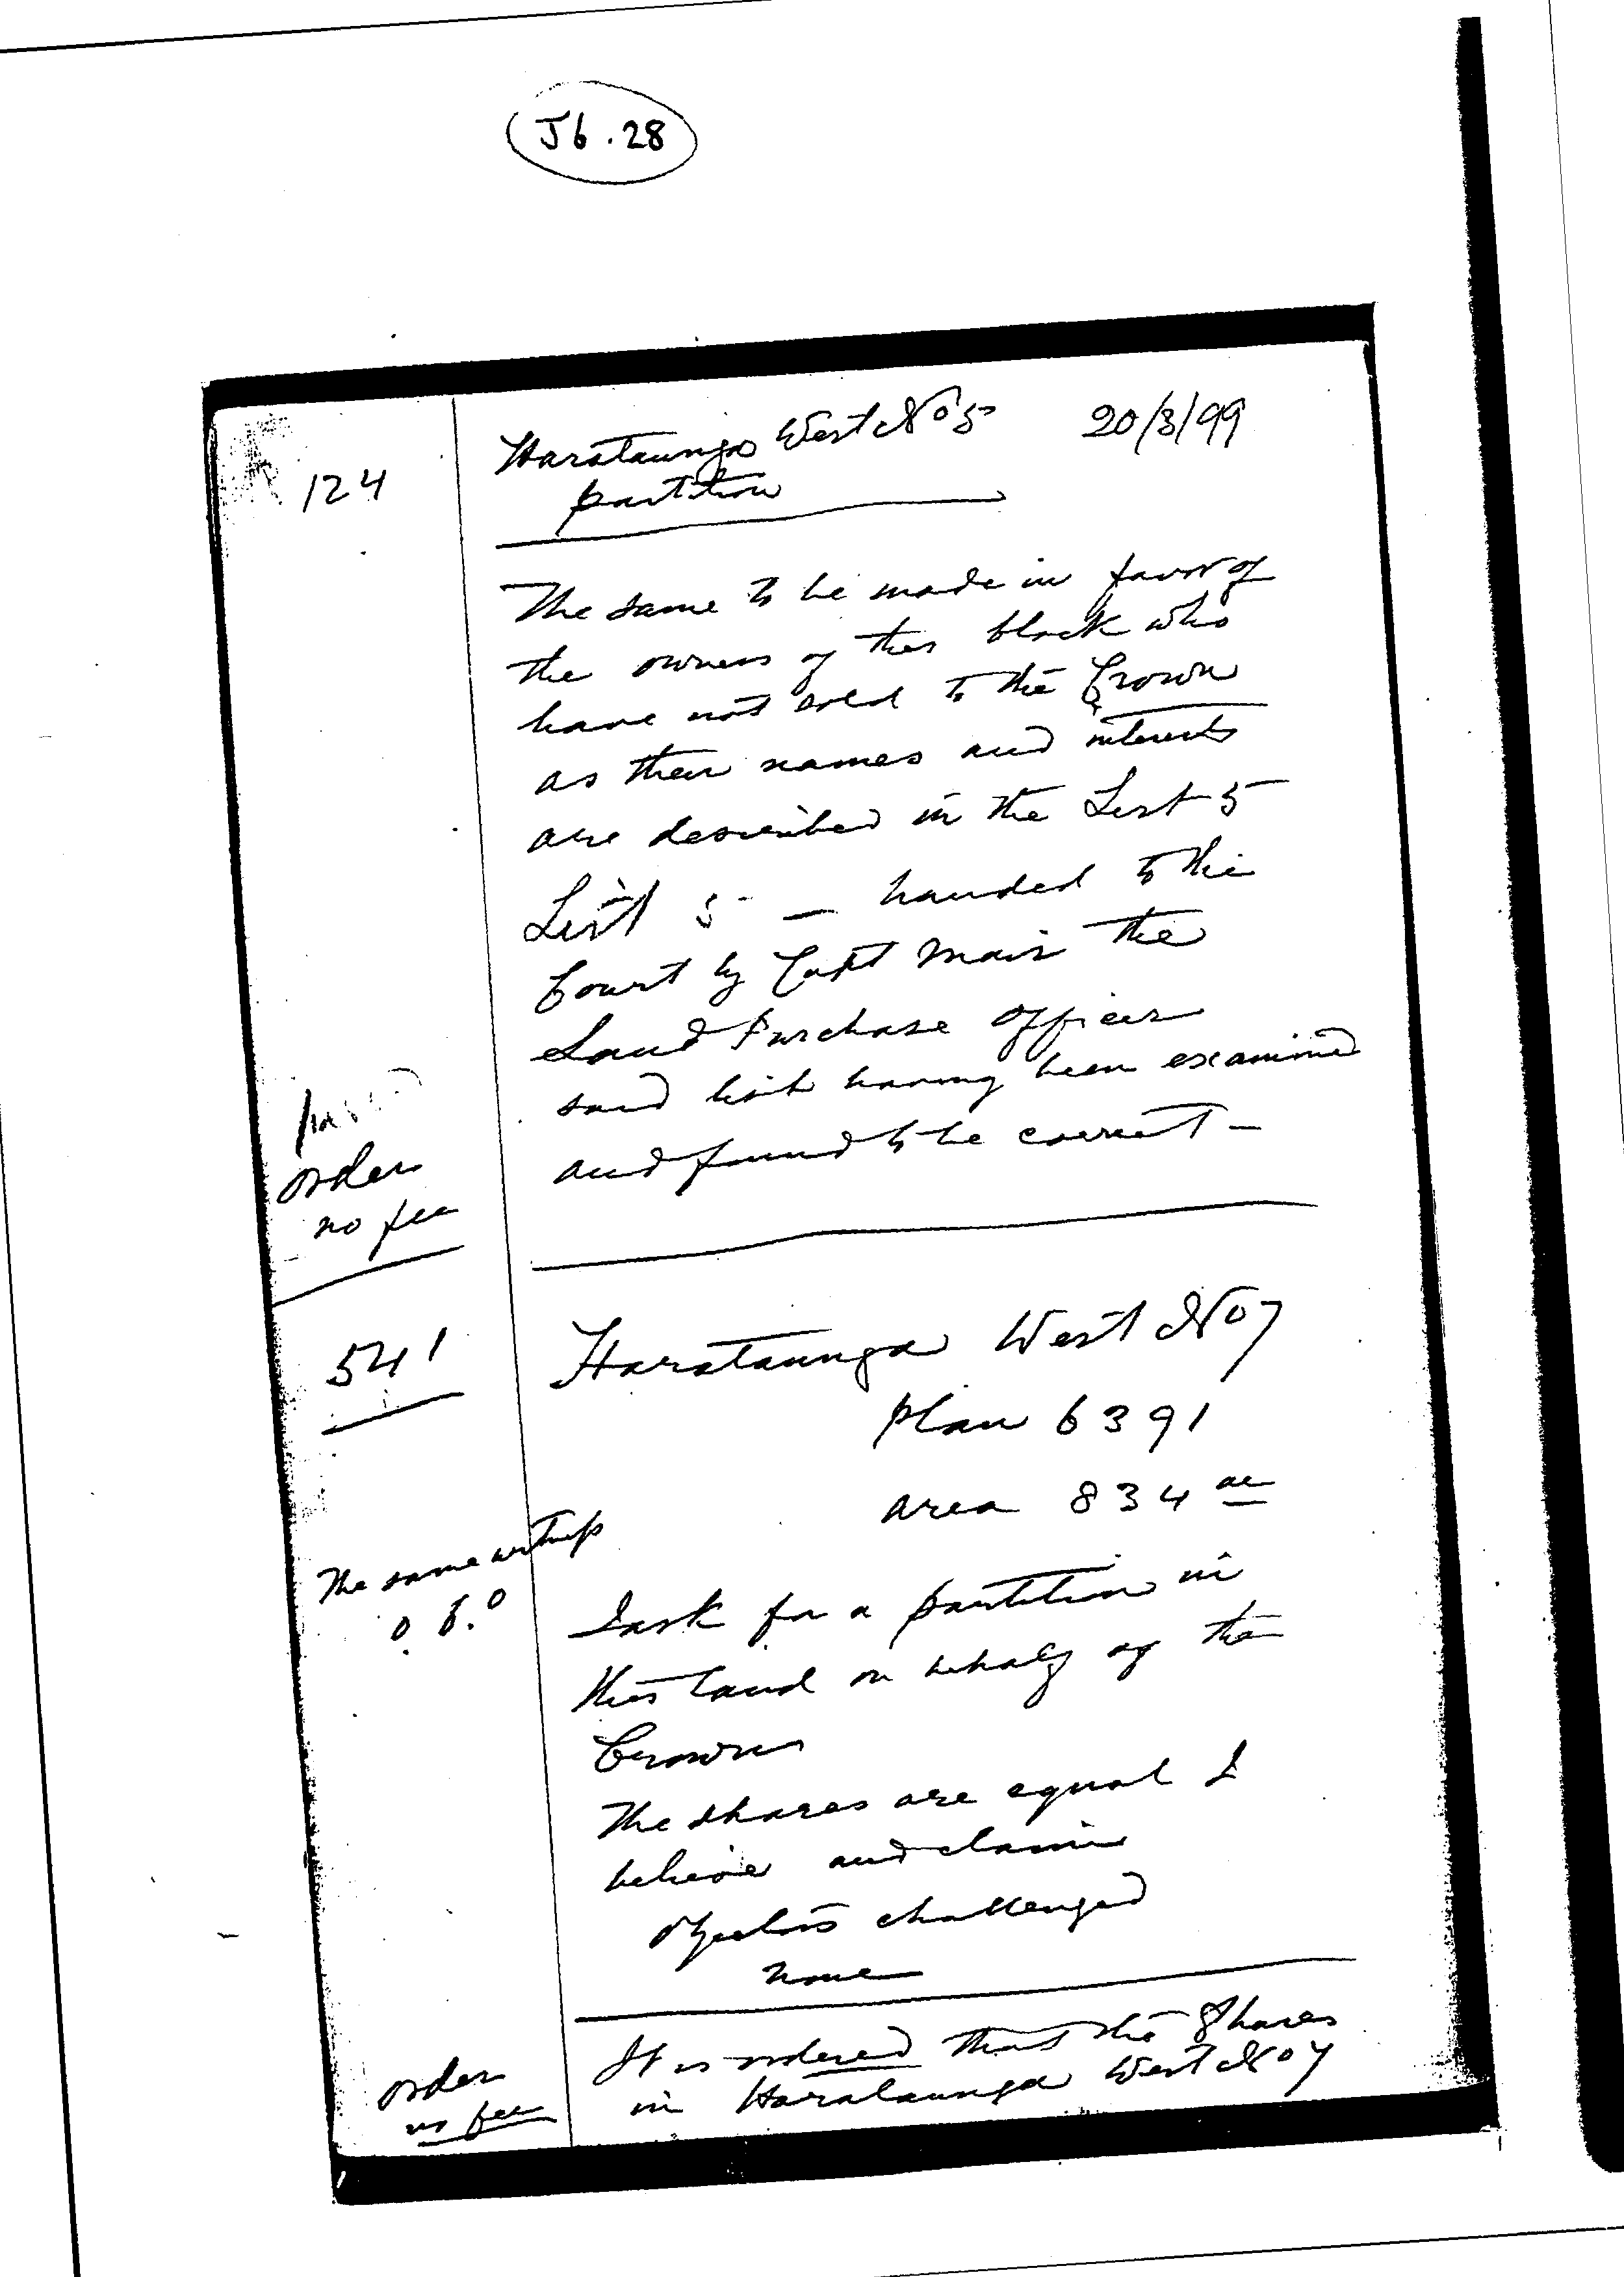 J6.28
Harataunga West No 5 20/3/99
124
partition
The same to be made in favor of
the owners of this block who
have not sold to the Crown
as their names and interests
are described in the List 5
List 5 — handed to the
Court by Capt Mair the
Land Purchase Officer
said list having been examined
and found to be correct —
order
no fee
541
Harataunga West No 7
plan 6391
area 834 ac
The same witness
o. b. o
I ask for a partition in
this land on behalf of the
Crown
The shares are equal I
believe and claim
Objectors challenged
none
It is ordered that the Shares
in Harataunga West No 7
order
no fee